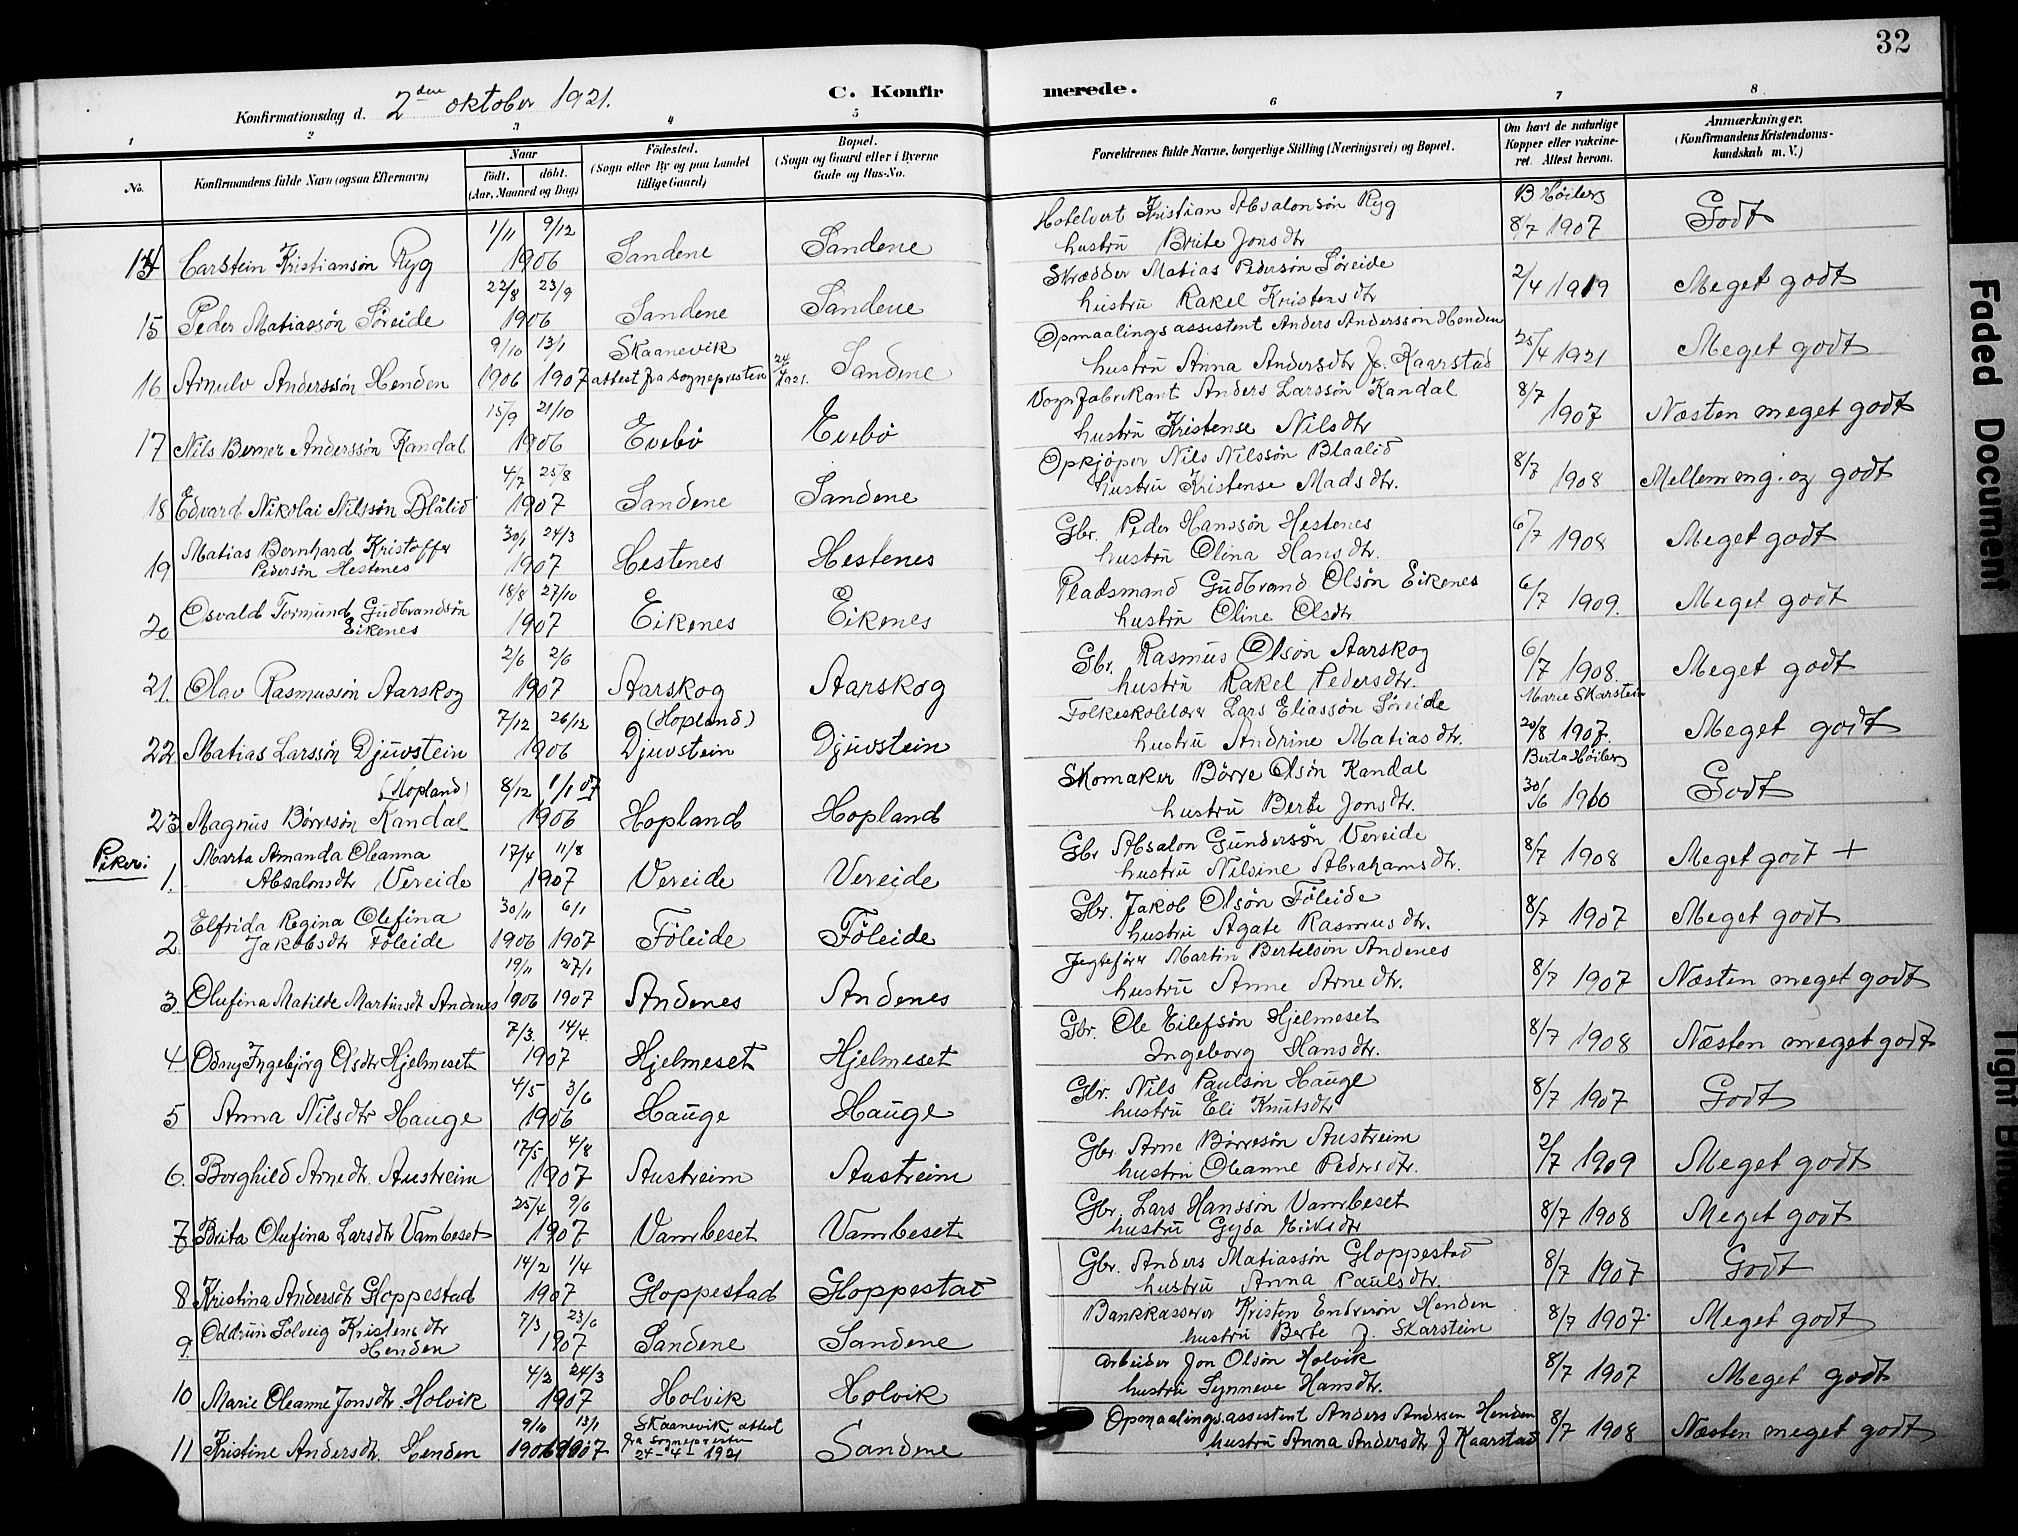 32
Konfirmationsdag d. 2den oktober 1921.
C. Konfirmerede.
1 2 3 4 5 6 7 8
No.
Konfirmandens fulde Navn (ogsaa Efternavn)
Naar
födt. döbt.
(Aar, Maaned og Dag)
Födested.
(Sogn eller By og paa Landet
tillige Gaard)
Bopæl.
(Sogn og Gaard eller i Byerne
Gade og Hus-No.
Forældrenes fulde Navne, borgerlige Stilling (Næringsvei) og Bopæl.
Om havt de naturlige
Kopper eller vaccine-
ret. Attest herom.
Anmærkninger.
(Konfirmandens Kristendoms-
kundskab m. V.)
14 Carstein Kristiansön Ryg 1/11 9/12 1906 Sandene Sandene Hotelvert Kristian Absalonsön Ryg
hustru Brite Jonsdtr B Höilers 8/7 1907 Godt
15 Peder Matiassön Söreide 22/8 23/9 1906 Sandene Sandene Skrædder Matias Pedersön Söreide
hustru Rakel Kristensdtr 2/4 1919 Meget godt
16 Arnulv Anderssön Henden 9/10 1906 13/1 1907 Skaanevik
attest fra sognepresten 24/4 1921. Sandene Opmaalingsassistent Anders Anderssön Henden
hustru Anna Andersdtr f. Kaarstad 25/4 1921 Meget godt
17 Nils Berner Anderssön Kandal 15/9 21/10 1906 Evebö Evebö Vognfabrikant Anders Larssön Kandal
hustru Kristense Nilsdtr 8/7 1907 Næsten meget godt
18 Edvard Nikolai Nilssön Blålid 4/7 25/8 1907 Sandene Sandene Opkjöper Nils Nilssön Blaalid
hustru Kristense Madsdtr. 8/7 1908 Mellem mg. og godt
19 Matias Bernhard Kristoffer
Pedersön Hestenes 30/1 24/3 1907 Hestenes Hestenes Gbr. Peder Hanssön Hestenes
hustru Olina Hansdtr. 6/7 1908 Meget godt
20 Osvald Tormund Gudbrandsön
Eikenes 18/8 27/10 1907 Eikenes Eikenes Pladsmand Gudbrand Olsön Eikenes
hustru Oline Olsdtr 6/7 1909. Meget godt
21. Olav Rasmussön Aarskog 2/6 2/6 1907 Aarskog Aarskog Gbr. Rasmus Olsön Aarskog
hustru Rakel Pedersdtr. 6/7 1908. Meget godt
22. Matias Larssön Djuvstein 7/12 26/12 1906 (Hopland)
Djuvstein Djuvstein Folkeskolelærer Lars Eliassön Söreide
hustru Andrine Matiasdtr. Marie Skarstein 20/8 1907. Meget godt
23. (Hopland)
Magnus Börresön Kandal 8/12 1/1 07 1906 Hopland Hopland Skomaker Börre Olsön Kandal
hustru Berte Jonsdtr. Berta Höilers 30/6 1910 Godt
Piker:
1. Marta Amanda Oleanna
Absalonsdtr Vereide 17/4 11/8 1907 Vereide Vereide Gbr Absalon Gundersön Vereide
hustru Nilsine Abrahamsdtr. 8/7 1908 Meget godt +
2. Elfrida Regina Olefina
Jakobsdtr Föleide 30/11 1906 6/1 1907 Föleide Föleide Gbr. Jakob Olsön Föleide
hustru Agate Rasmusdtr. 8/7 1907 Meget godt
3. Olufina Matilde Martinsdt Andenes 19/11 1906 27/1 1907 Andenes Andenes Jegtefører Martin Bertelsön Andenes
hustru Anne Arnedtr. 8/7 1907 Næsten meget godt
4 Odny Ingebjörg Olsdtr Hjelmeset 7/3. 14/4. 1907 Hjelmeset Hjelmeset Gbr. Ole Eilefsön Hjelmeset
Ingeborg Hansdtr. 8/7 1908 Næsten meget godt
5 Anna Nilsdtr Hauge 4/5 3/6 1906 Hauge Hauge Gbr. Nils Paulsön Hauge
hustru Eli Knutsdtr 8/7 1907 Godt
6. Borghild Arnedtr. Austreim 17/5 4/8 1907 Austreim Austreim Gbr. Arne Börresön Austreim
hustru Oleanne Pedersdtr. 2/7 1909 Meget godt
7 Brita Olufina Larsdtr Vambeset 25/4 9/6 1907 Vambeset Vambeset Gbr. Lars Hanssön Vambeset
hustru Gyda 8/7 1908 Meget godt
8 Kristina Andersdtr Gloppestad 14/2 1/4 1907 Gloppestad Gloppestad Gbr. Anders Matiassön Gloppestad
hustru Anna Paulsdtr. 8/7 1907 Godt
9. Oddrun Solveig Kristensdtr
Henden 7/3 23/6 1907 Sandene Sandene Bankkasserer Kristen Endresön Henden
hustru Berte J. Skarstein 8/7 1907. Meget godt
10 Marie Oleanne Jonsdtr. Holvik 4/2 24/3 1907 Holvik Holvik arbeider Jon Olsön Holvik
hustru Synneve Hansdtr. 8/7 1907 Meget godt
11 Kristine Andersdtr. Henden 9/10 1906 13/1 1907 Skaanevik attest
fra sognepresten
24-4-1921 Sandene Opmaalingsassistent Anders Andersen Henden
hustru Anna Andersdtr f Kaarstad 8/7 1908 Næsten meget godt
Faded Document
Tight Bin